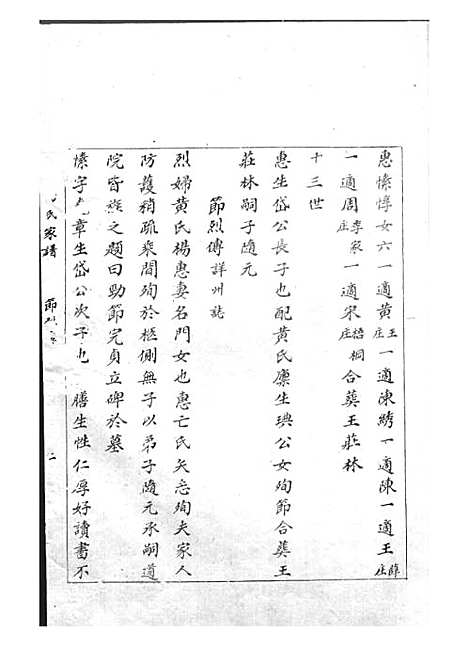 惠愫惇女六一適黃王庄一適陳綉一適陳一適王薛庄
一適周李家庄一適宋梧桐庄合葬王莊林
十三世
惠生岱公長子也配黃氏廪生琠公女殉節合葬王
莊林嗣子隨元
節烈傳詳州誌
烈婦黃氏楊惠妻名門女也惠亡氏矢志殉夫家人
防護稍疏乘間殉於柩側無子以弟子隨元承嗣道
院皆旌之題曰勁節完貞立碑於墓
愫字章生岱公次子也膳生性仁厚好讀書不
氏家譜
節
二